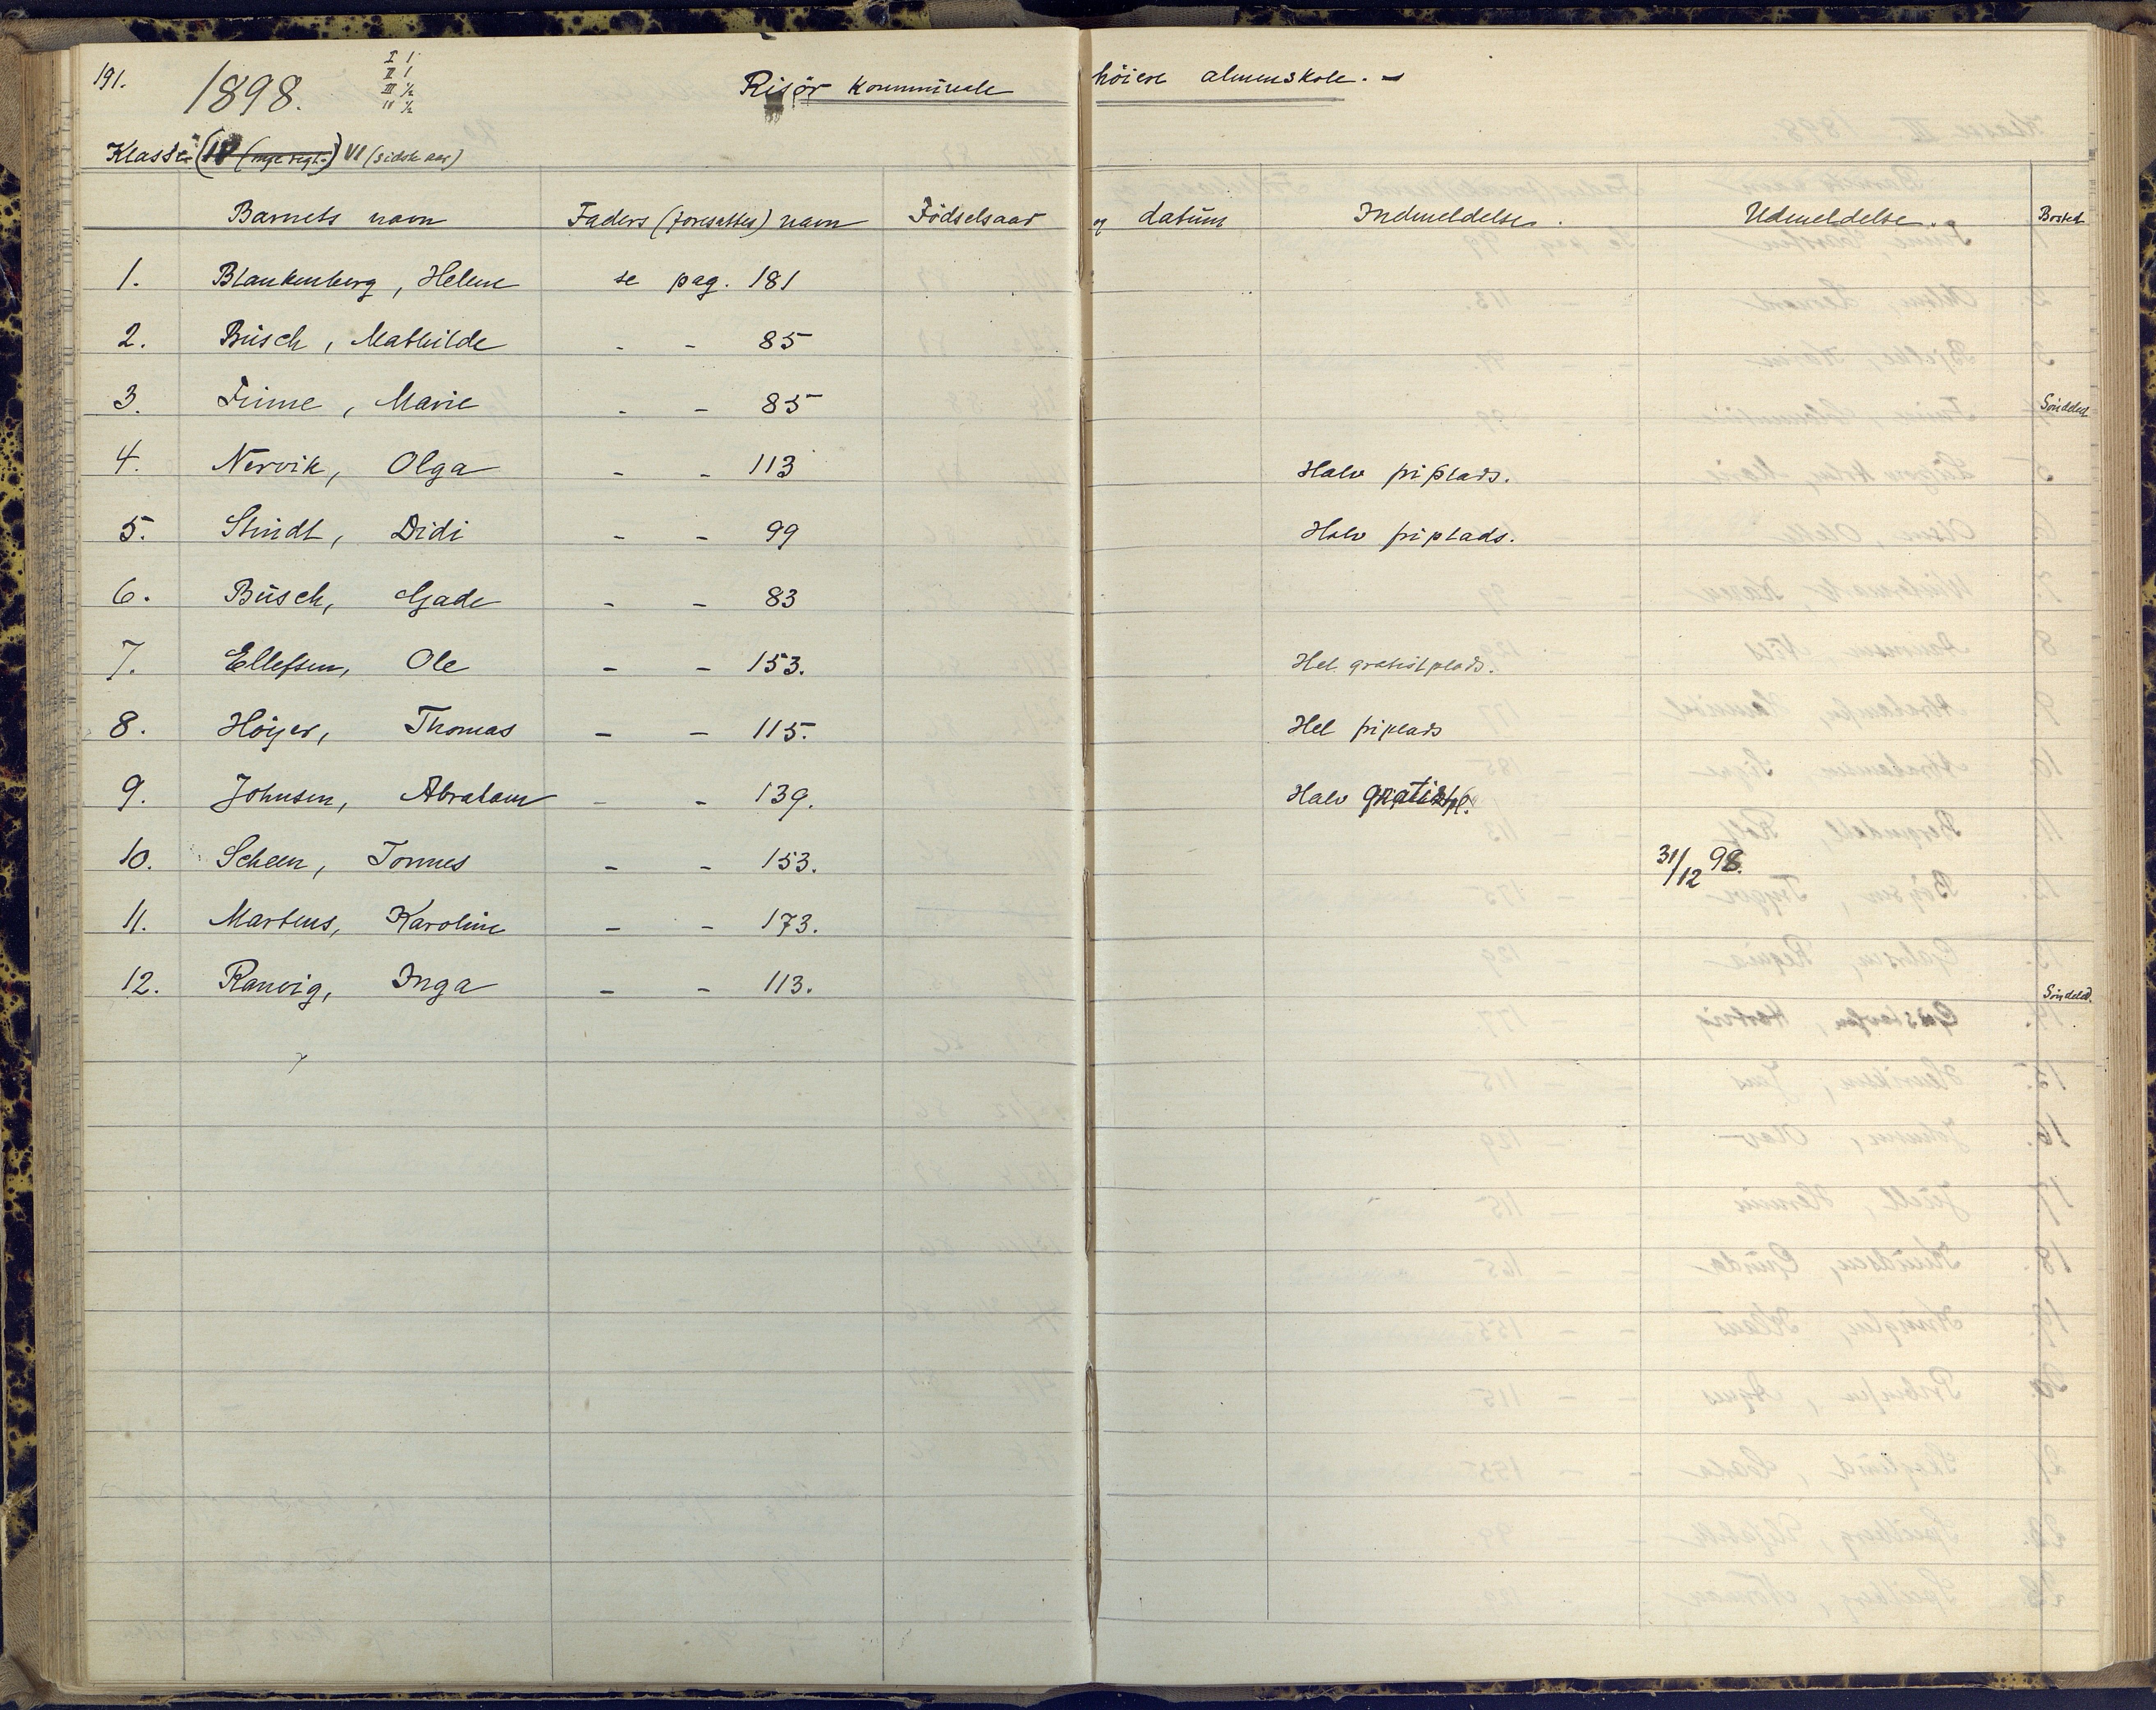 191.
1898.
I 1
II 1
III ½
IV ½
Risør kommunale høiere almenskole. -
Klasse (IV VI (sidste aar)
Barnets navn Faders (foresattes) navn Fødselsaar og datum Indmeldelse. Udmeldelse. Bosted
1. Blankenberg, Helene se pag. 181
2. Büsch, Mathilde - - 85
3. Finne, Marie - - 85 Søndeled
4. Nervik, Olga - - 113 Halv friplads.
5. Stindt, Didi - - 99 Halv friplads.
6. Büsch, Gade - - 83
7. Ellefsen, Ole - - 153. Hel gratistplads.
8. Höyer, Thomas - - 115. Hel friplads
9. Johnsen, Abraham - - 139. Halv gratistpl.
10. Scheen, Tønnes - - 153. 31/12 98.
11. Martens, Karoline - - 173.
12. Ranvig, Inga - - 113. Søndeled.